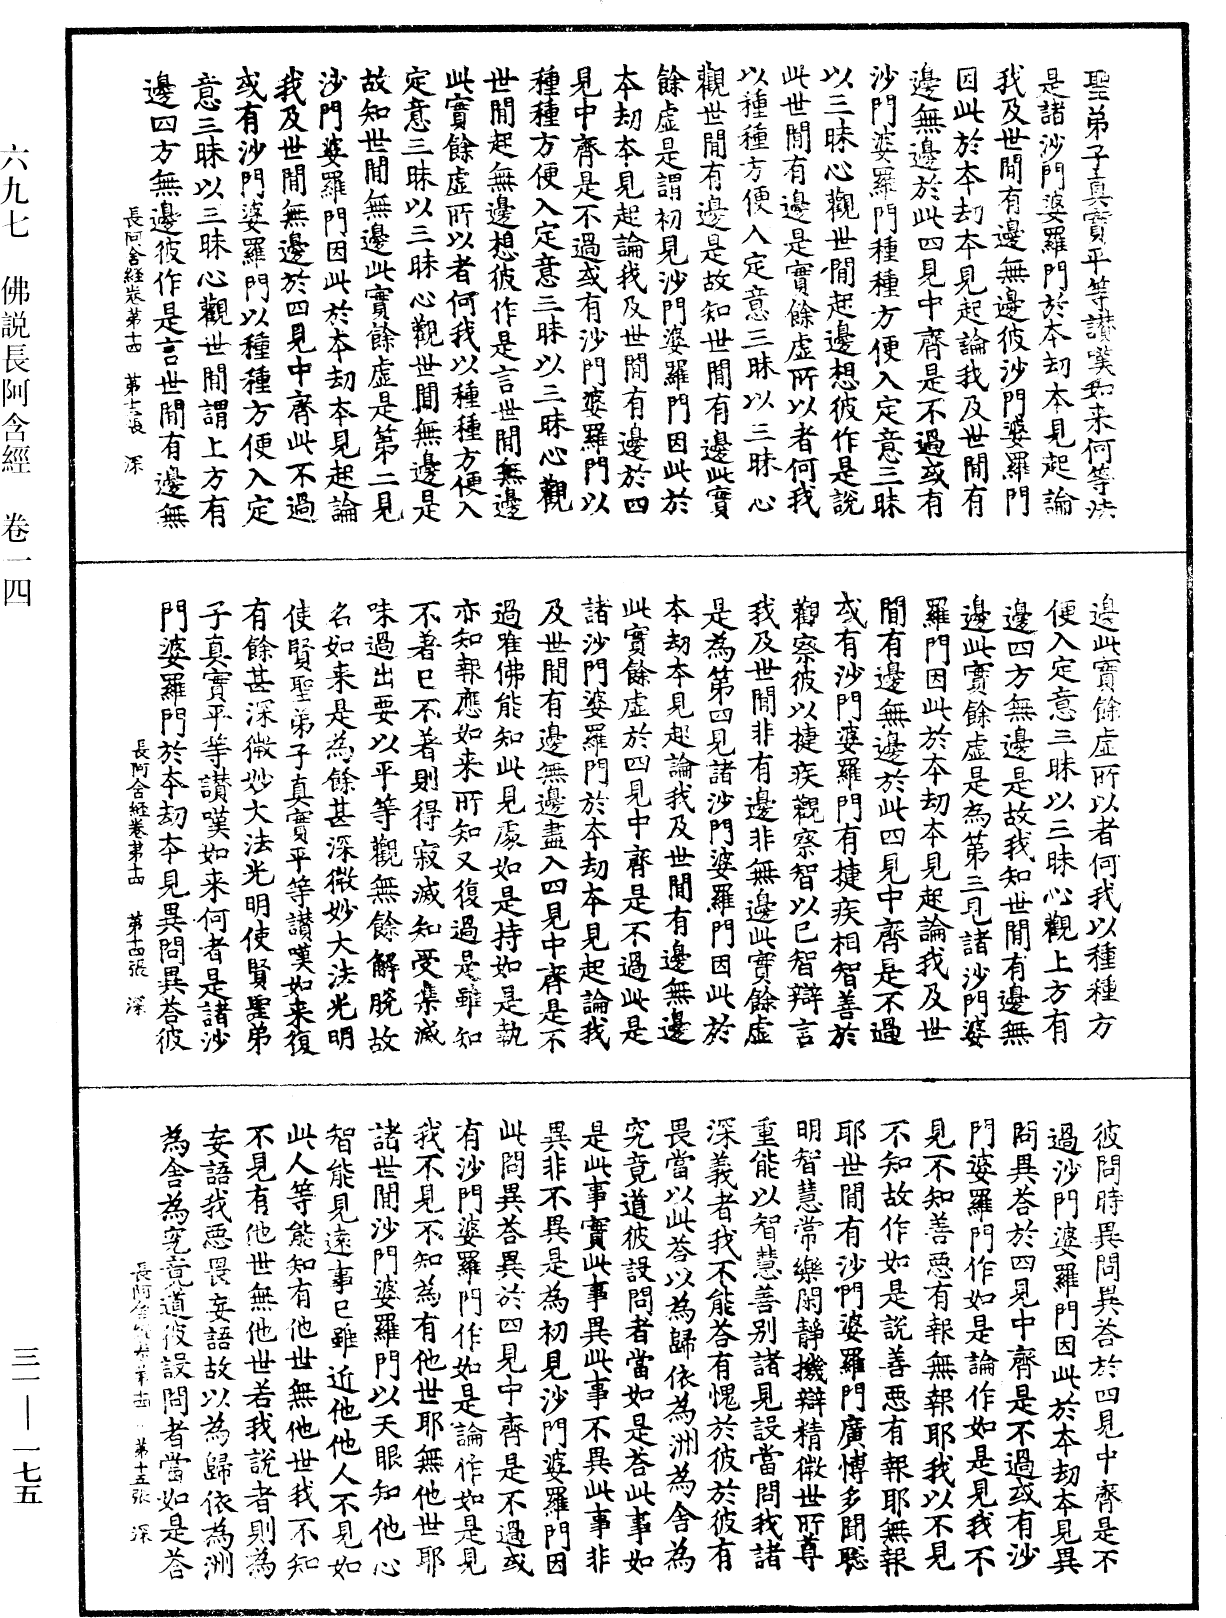 聖弟子真實平等讃嘆如来何等法
是諸沙門婆羅門於本刧本見起論
我及世間有邊無邊彼沙門婆羅門
因此於本刧本見起論我及世間有
邊無邊於此四見中齊是不過或有
沙門婆羅門種種方便入定意三昧
以三昧心觀世間起邊想彼作是說
此世間有邊是實餘虛所以者何我
以種種方便入定意三昧以三昧心
觀世間有邊是故知世間有邊此實
餘虛是謂初見沙門婆羅門因此於
本刧本見起論我及世間有邊於四
見中齊是不過或有沙門婆羅門以
種種方便入定意三昧以三昧心觀
世間起無邊想彼作是言世間無邊
此實餘虛所以者何我以種種方便入
定意三昧以三昧心觀世間無邊是
故知世間無邊此實餘虛是第二見
沙門婆羅門因此於本刧本見起論
我及世間無邊於四見中齊此不過
或有沙門婆羅門以種種方便入定
意三昧以三昧心觀世間謂上方有
邊四方無邊彼作是言世間有邊無
長阿含經卷第十四　第十三張　深
邊此實餘虛所以者何我以種種方
便入定意三昧以三昧心觀上方有
邊四方無邊是故我知世間有邊無
邊此實餘虛是為第三見諸沙門婆
羅門因此於本刧本見起論我及世
間有邊無邊於此四見中齊是不過
或有沙門婆羅門有捷疾相智善於
觀察彼以捷疾觀察智以己智辯言
我及世間非有邊非無邊此實餘虛
是為第四見諸沙門婆羅門因此於
本刧本見起論我及世間有邊無邊
此實餘虛於四見中齊是不過此是
諸沙門婆羅門於本刧本見起論我
及世間有邊無邊盡入四見中齊是不
過唯佛能知此見處如是持如是執
亦知報應如来所知又復過是雖知
不著已不著則得寂滅知受集滅
味過出要以平等觀無餘解脫故
名如来是為餘甚深微妙大法光明
使賢聖弟子真實平等讃嘆如来復
有餘甚深微妙大法光明使賢聖弟
子真實平等讃嘆如来何者是諸沙
門婆羅門於本刧本見異問異荅彼
長阿含經卷第十四　第十四張　深
彼問時異問異荅於四見中齊是不
過沙門婆羅門因此於本刧本見異
問異荅於四見中齊是不過或有沙
門婆羅門作如是論作如是見我不
見不知善惡有報無報耶我以不見
不知故作如是說善惡有報耶無報
耶世間有沙門婆羅門廣博多聞聡
明智慧常樂閑靜機辯精微世所尊
重能以智慧善別諸見設當問我諸
深義者我不能荅有愧於彼於彼有
畏當以此荅以為歸依為洲為舍為
究竟道彼設問者當如是荅此事如
是此事實此事異此事不異此事非
異非不異是為初見沙門婆羅門因
此問異荅異於四見中齊是不過或
有沙門婆羅門作如是論作如是見
我不見不知為有他世耶無他世耶
諸世間沙門婆羅門以天眼知他心
智能見遠事已雖近他他人不見如
此人等能知有他世無他世我不知
不見有他世無他世若我說者則為
妄語我惡畏妄語故以為歸依為洲
為舍為究竟道彼設問者當如是荅
長阿含　第十四　第十五張　深
六九七　佛説長阿含經　卷一四
三一—一七五